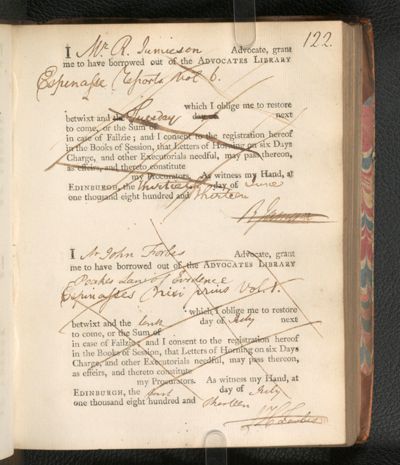 122.
I Mr. R. Jameson Advocate, grant
me to have borrowed out of the ADVOCATES LIBRARY
Espinasse Reports Vol 6.
which I oblige me to restore
betwixt and the Tuesday day on next
to come, or the Sum of
in case of Failzie; and I consent to the registration hereof
in the Books of Session, that Letters of Horning on six Days
Charge, and other Executorials needful, may pass thereon,
as effeirs, and thereto constitute
my Procurators. As witness my Hand, at
EDINBURGH, the thirtieth day of June
one thousand eight hundred and thirteen
R Jameson
I Mr John Forbes Advocate, grant
me to have borrowed out of the ADVOCATES LIBRARY
Peakes Law of Evidence
Espinasses Nisi prius Vol 1.
which I oblige me to restore
betwixt and the tenth day of July next
to come, or the Sum of
in case of Failzie; and I consent to the registration hereof
in the Books of Session, that Letters of Horning on six Days
Charge, and other Executorials needful, may pass thereon,
as effeirs, and thereto constitute
my Procurators. As witness my Hand, at
EDINBURGH, the first day of July
one thousand eight hundred and thirteen